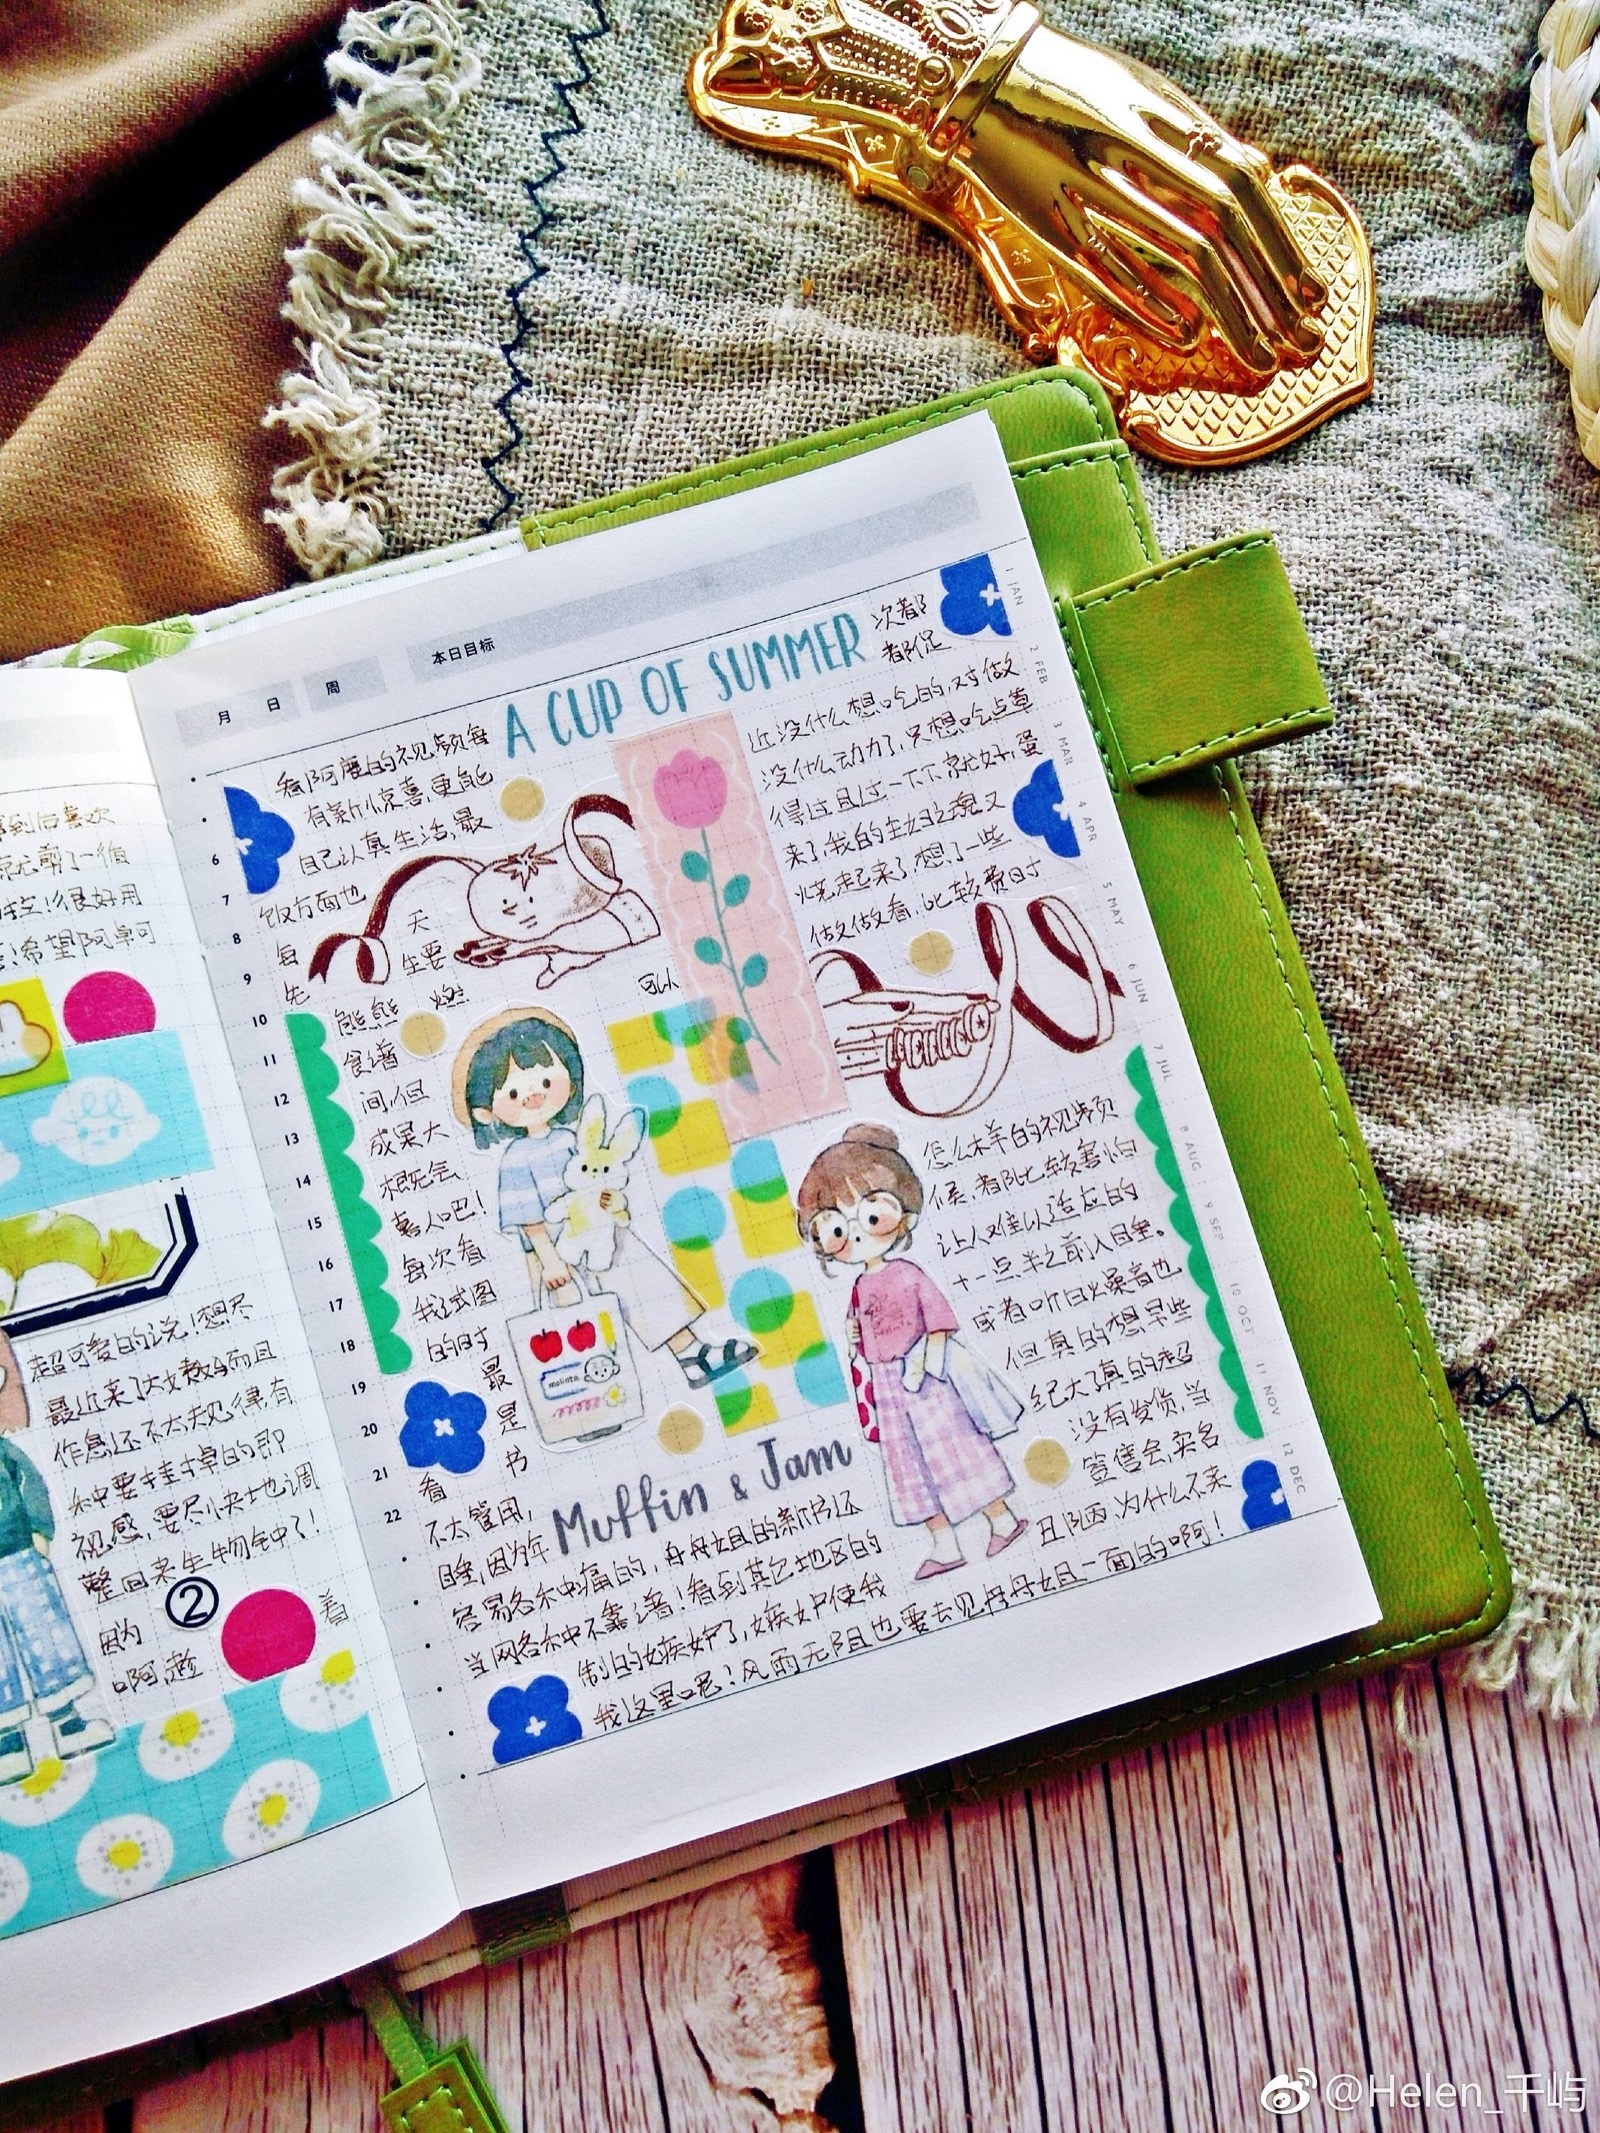 到后喜欢
剪了一个值
很好用
希望阿卓可
超可爱的说!想尽
最近来了大姨妈而且
作息还不太规律,有
种要挂掉的即
视感,要尽快地调
整回来生物钟了!
因为
②
着
啊,趁
月 日 周 本日目标
A CUP OF SUMMER
看阿度的视频每
有新小惊喜,更能
自己认真生活,最
饭方面也
每 天
先 生要
熊熊 燃
可以
食谱
间,但
成果大
概会
喜人吧!
每次看
我试图
的时
最
是
看 书
不太管用,
睡,因为年
次都
都促
近没什么想吃的,对做
没什么动力了,只想吃点草
得过且过一下下就好,蛋
来了,我的主妇之魂又
烧起来了,想了一些
做做看,比较费时
怎么样的视频
候,都比较害怕
让人难以适应的
十一点半之前入睡。
或者听白噪音也
但真的想早些
纪大了真的超
没有发货,当
签售会,实名
丑陋,为什么不来
Muffin & Jam
容易各种痛的,丹丹姐的新书还
当网各种不靠谱!看到其它地区的
制的嫉妒了,嫉妒使我
我这里呢?风雨无阻也要去见丹丹姐一面的啊!
6
7
8
9
10
11
12
13
14
15
16
17
18
19
20
21
22
1 JAN
2 FEB
3 MAR
4 APR
5 MAY
6 JUN
7 JUL
8 AUG
9 SEP
10 OCT
11 NOV
12 DEC
@Helen_千屿